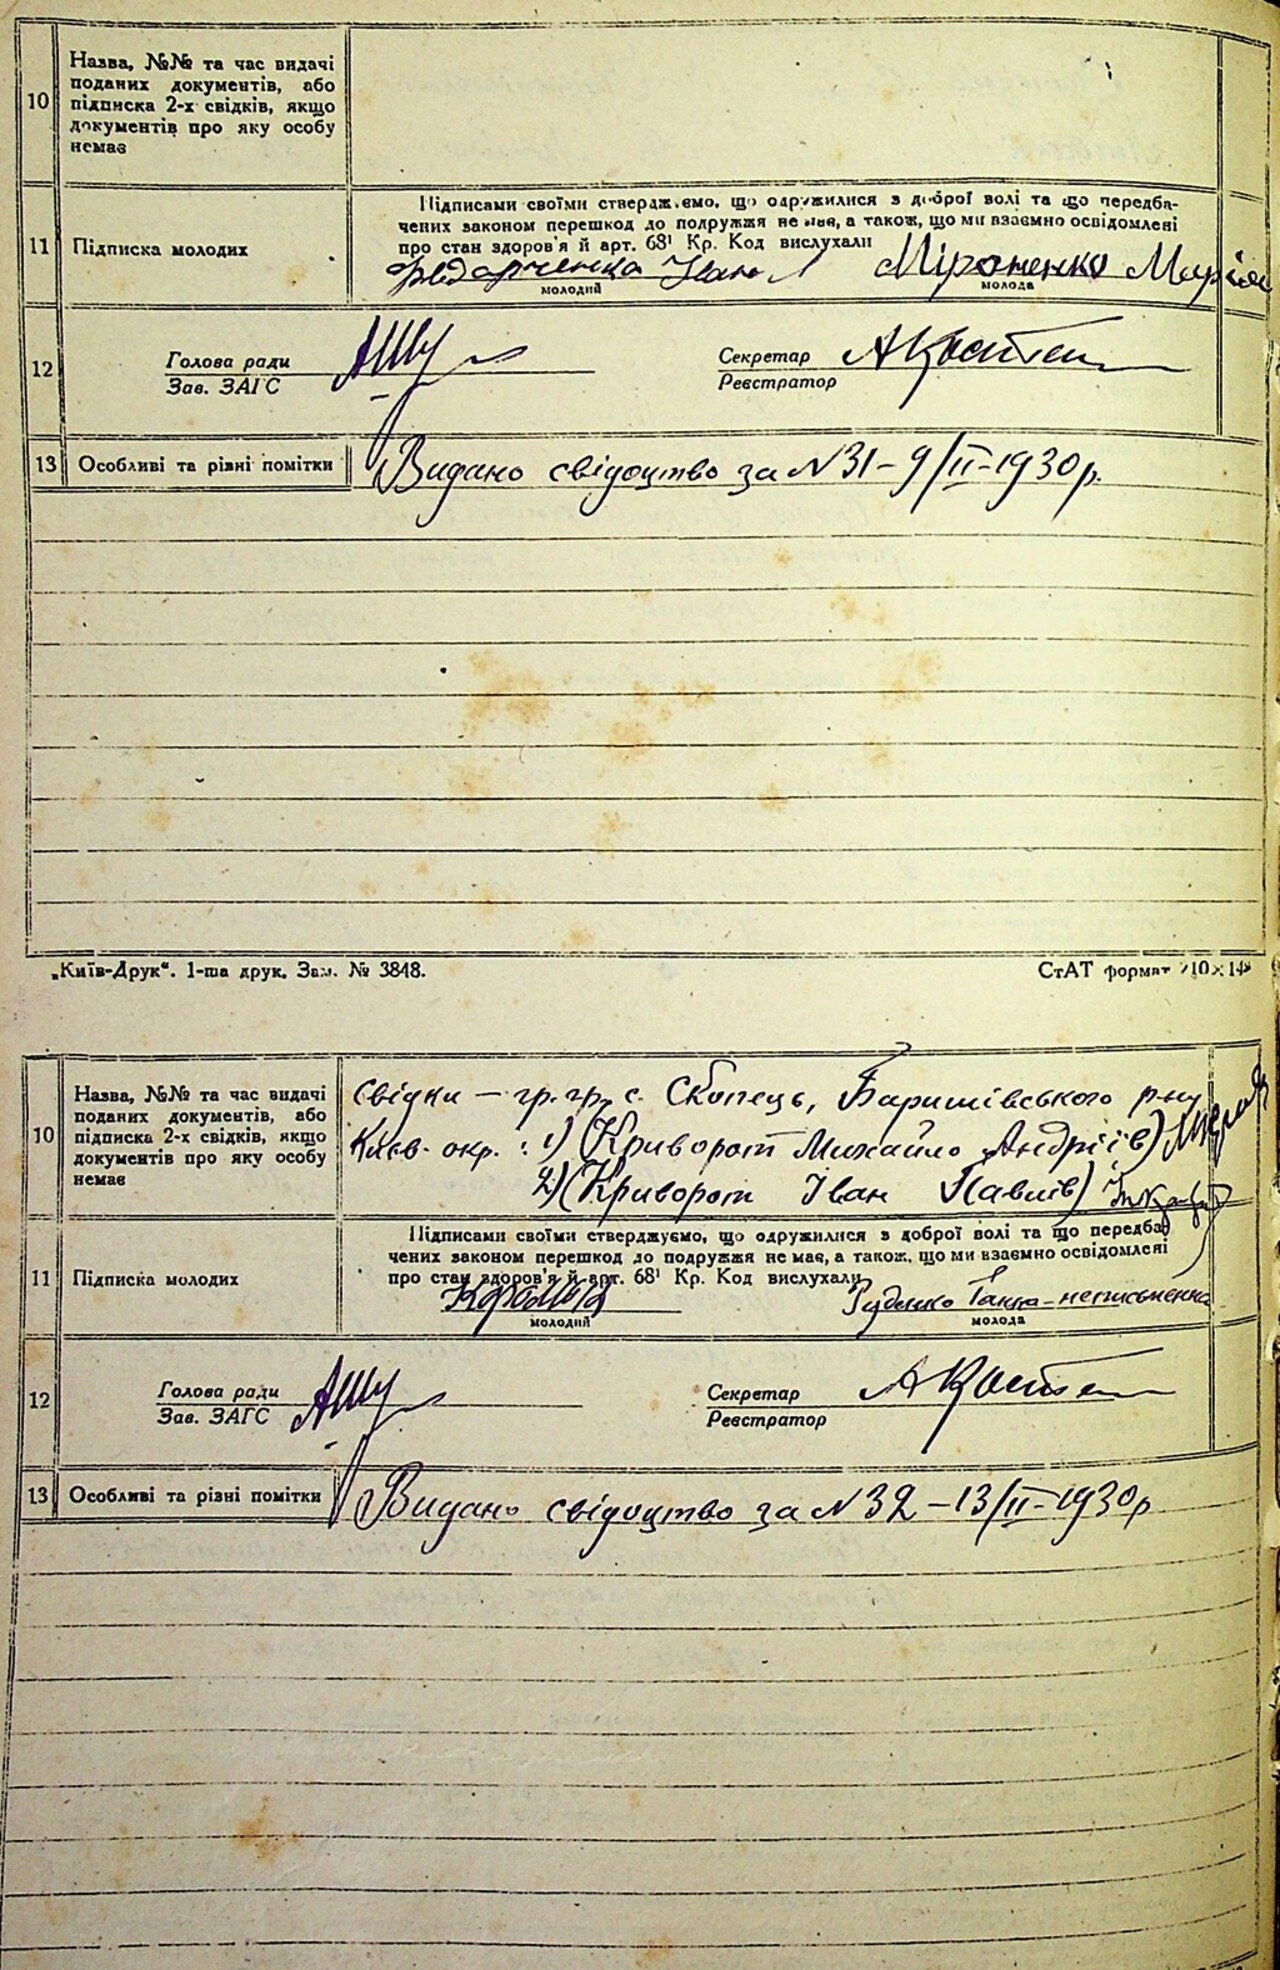 10
Назва, №№ та час видачі
поданих документів, або
підписка 2-х свідків, якщо
документів про яку особу
немає
11
Підписка молодих
Підписами своїми стверджуємо, що одружилися з доброї волі та що передба-
чених законом перешкод до подружжя не має, а також, що ми взаємно освідомлені
про стан здоров'я й арт. 68¹ Кр. Код вислухали
Іван Міроненко Марія
молодий молода
12
Голова ради Секретар
Зав. ЗАГС Реєстратор
13
Особливі та різні помітки
Видано свідоцтво за N 31 – 9/II–1930 р.
„Київ-Друк“. 1-ша друк. Зам. № 3848. СтАТ формат
10
Назва, №№ та час видачі
поданих документів, або
підписка 2-х свідків, якщо
документів про яку особу
немає
Свідки – гр. гр. с. Скопець, Баришівського р-ну
Київ. окр.: 1) (Криворот Михайло Андріїв)
2) (Криворот Іван Павлів)
11
Підписка молодих
Підписами своїми стверджуємо, що одружилися з доброї волі та що передба
чених законом перешкод до подружжя не має, а також, що ми взаємно освідомлені
про стан здоров'я й арт. 68¹ Кр. Код вислухали
Руденко Ганна – неписьменна
молодий молода
12
Голова ради Секретар
Зав. ЗАГС Реєстратор
13
Особливі та різні помітки
Видано свідоцтво за N 32 – 13/II–1930 р